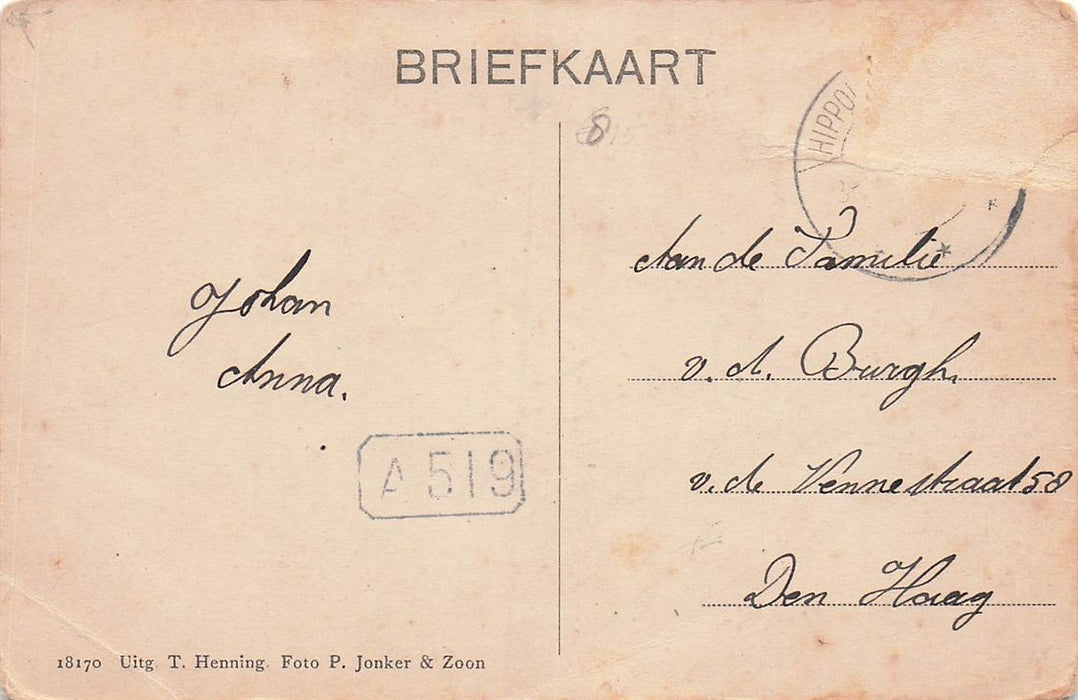 BRIEFKAART
8
HIPPO
Aan de Familie
v. d. Burgh.
v. de Vennestraat 58
Den Haag
Johan
Anna.
A 519
18170 Uitg. T. Henning. Foto P. Jonker & Zoon